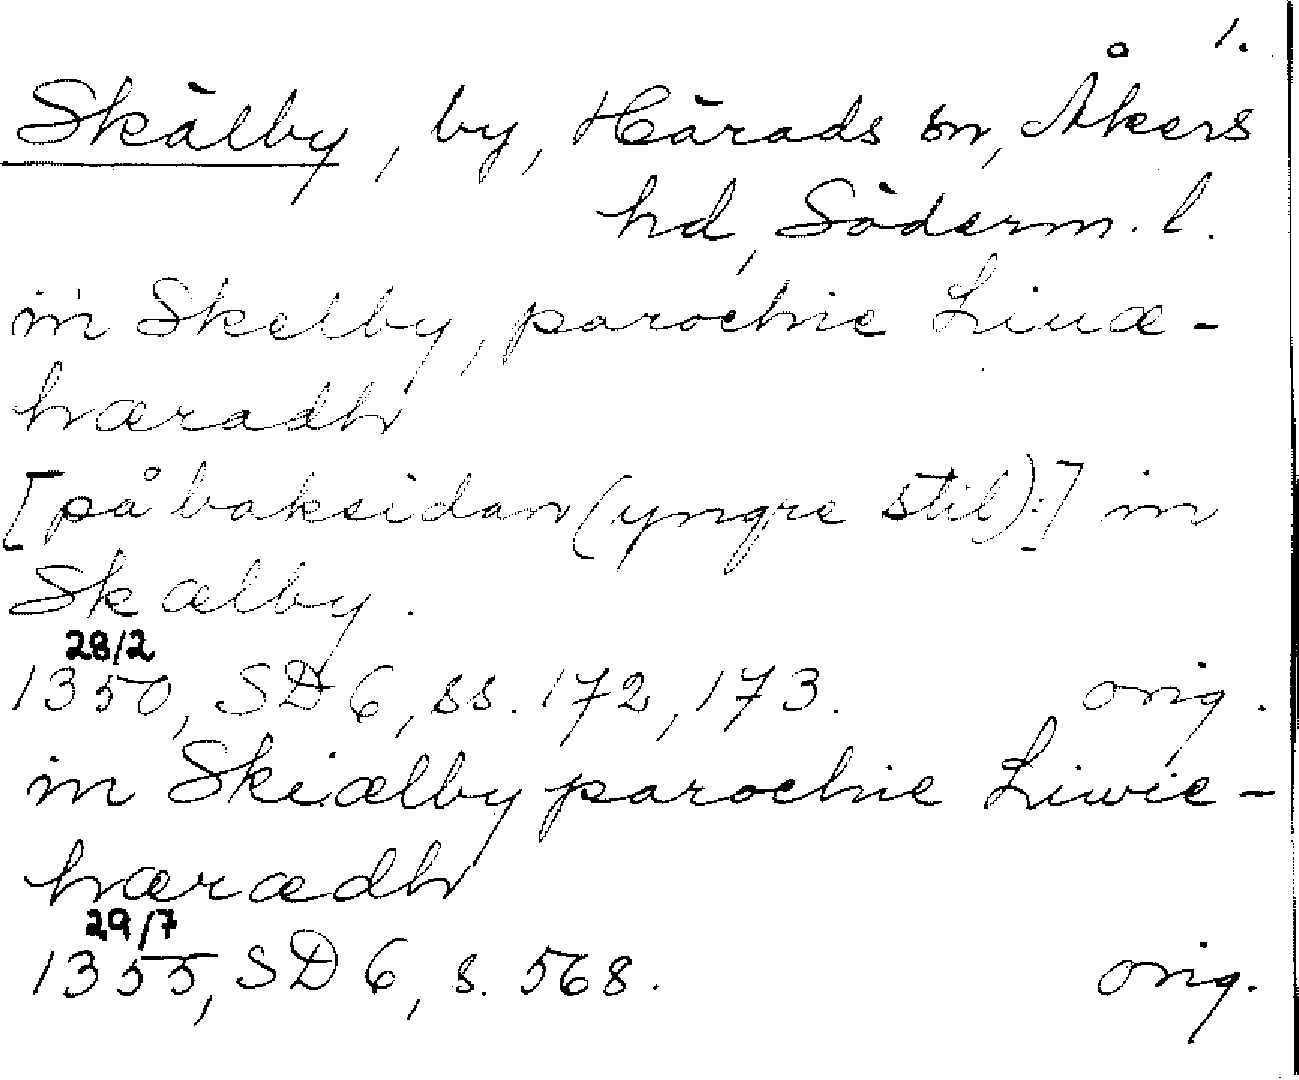 1.
Skälby, by, Härads sn, Åkers
hd, Söderm. l.
in Skelby, parochie Liuæ-
hæradh
[på baksidan (yngre stil):] in
Skælby.
28/2
1350, SD 6, ss. 172, 173. orig.
in Skiælby parochie Liwie-
hærædh
29/7
1355, SD 6, s. 568. orig.